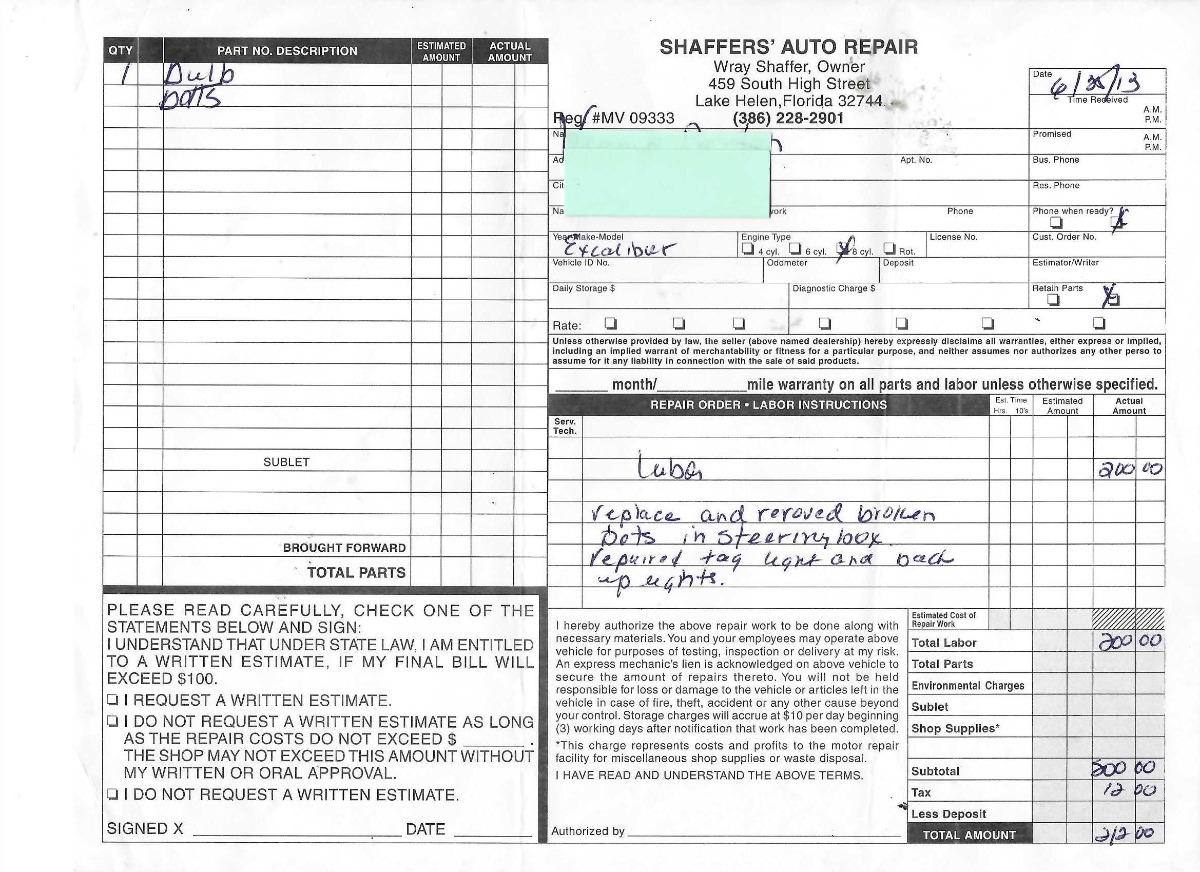 QTY PART NO. DESCRIPTION ESTIMATED AMOUNT ACTUAL AMOUNT
1 Bulb
Bolts
SUBLET
BROUGHT FORWARD
TOTAL PARTS
PLEASE READ CAREFULLY, CHECK ONE OF THE
STATEMENTS BELOW AND SIGN:
I UNDERSTAND THAT UNDER STATE LAW, I AM ENTITLED
TO A WRITTEN ESTIMATE, IF MY FINAL BILL WILL
EXCEED $100.
I REQUEST A WRITTEN ESTIMATE.
I DO NOT REQUEST A WRITTEN ESTIMATE AS LONG
AS THE REPAIR COSTS DO NOT EXCEED $ ______ .
THE SHOP MAY NOT EXCEED THIS AMOUNT WITHOUT
MY WRITTEN OR ORAL APPROVAL.
I DO NOT REQUEST A WRITTEN ESTIMATE.
SIGNED X ____________ DATE ________
SHAFFERS' AUTO REPAIR
Wray Shaffer, Owner
459 South High Street
Lake Helen,Florida 32744
Reg #MV 09333 (386) 228-2901
Date 6/25/13
Time Received A.M.
P.M.
Promised A.M.
P.M.
Apt. No. Bus. Phone
Res. Phone
Phone Phone when ready?
Year-Make-Model Excalibur Engine Type 4 cyl. 6 cyl. 8 cyl. Rot. License No. Cust. Order No.
Vehicle ID No. Odometer Deposit Estimator/Writer
Daily Storage $ Diagnostic Charge $ Retain Parts
Rate:
Unless otherwise provided by law, the seller (above named dealership) hereby expressly disclaims all warranties, either express or implied,
including an implied warrant of merchantability or fitness for a particular purpose, and neither assumes nor authorizes any other perso to
assume for it any liability in connection with the sale of said products.
______ month/__________mile warranty on all parts and labor unless otherwise specified.
REPAIR ORDER • LABOR INSTRUCTIONS Est. Time Hrs. 10's Estimated Amount Actual Amount
Serv. Tech.
Labor 200 00
replace and reroved broken
Bots in steering box
repaired tag light and back
up lights.
I hereby authorize the above repair work to be done along with
necessary materials. You and your employees may operate above
vehicle for purposes of testing, inspection or delivery at my risk.
An express mechanic's lien is acknowledged on above vehicle to
secure the amount of repairs thereto. You will not be held
responsible for loss or damage to the vehicle or articles left in the
vehicle in case of fire, theft, accident or any other cause beyond
your control. Storage charges will accrue at $10 per day beginning
(3) working days after notification that work has been completed.
*This charge represents costs and profits to the motor repair
facility for miscellaneous shop supplies or waste disposal.
I HAVE READ AND UNDERSTAND THE ABOVE TERMS.
Authorized by ____________________
Estimated Cost of Repair Work
Total Labor 200 00
Total Parts
Environmental Charges
Sublet
Shop Supplies*
Subtotal 200 00
Tax 12 00
Less Deposit
TOTAL AMOUNT 212 00